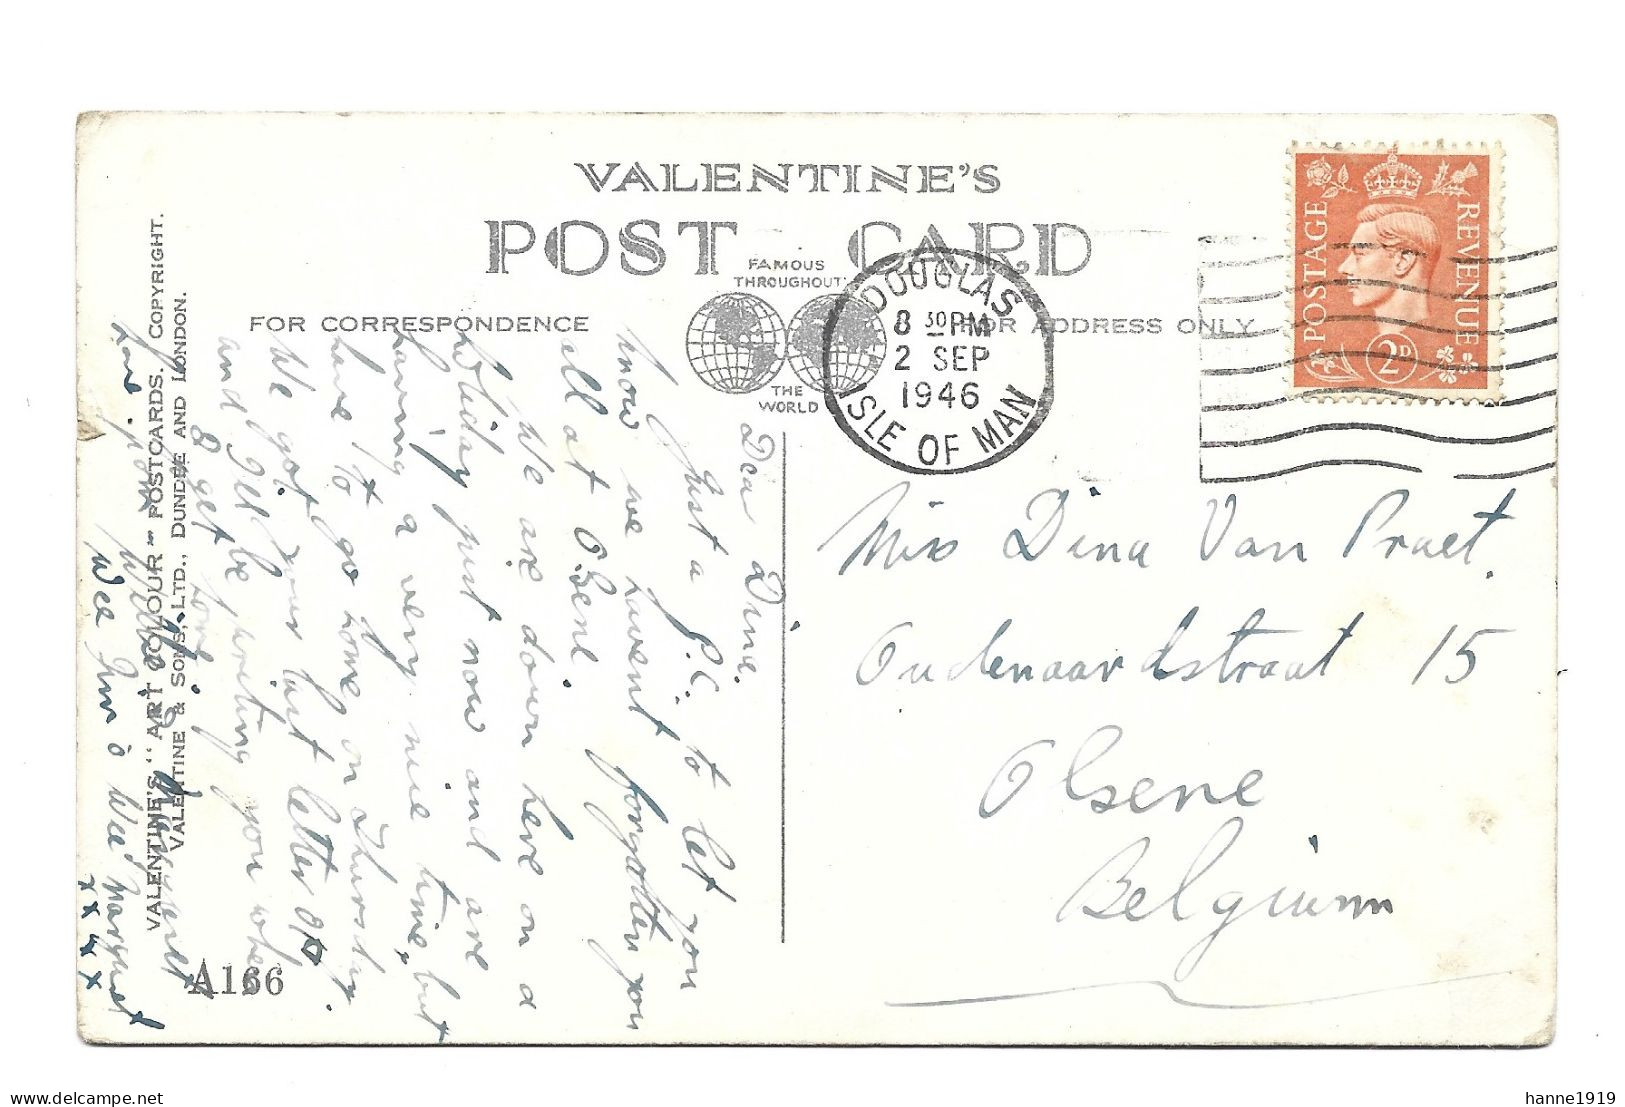 VALENTINE'S
POST CARD
FAMOUS
THROUGHOUT
THE
WORLD
FOR CORRESPONDENCE
FOR ADDRESS ONLY
DOUGLAS
8 30 PM
2 SEP
1946
ISLE OF MAN
POSTAGE
REVENUE
2D
Miss Dina Van Praet.
Oudenaardstraat 15
Olsene
Belgium
Dear Dina.
Just a P.C. to let you
know we havent forgotten you
all at Olsene.
We are down here on a
holiday just now and are
having a very nice time, but
have to go home on Thursday.
We got your last letter ok
and I'll be writing you when
I get home.
love from Willie
Wee Jim & Wee Margaret
x x x x
VALENTINE'S "ART COLOUR" POSTCARDS. COPYRIGHT.
VALENTINE & SONS, LTD., DUNDEE AND LONDON.
A166
delcampe.net
hanne1919